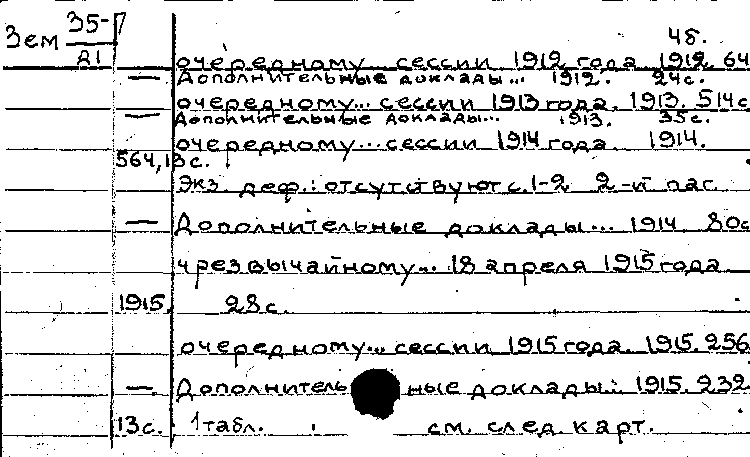 Зем 35-/21
4б.
очередному... сессии 1912 года. 1912. 64
— Дополнительные доклады... 1912. 24с.
очередному... сессии 1913 года. 1913. 514с
— Дополнительные доклады... 1913. 35с.
очередному... сессии 1914 года. 1914.
564, 13с.
Экз. деф.: отсутствуют с. 1-2 2-й паг.
— Дополнительные доклады... 1914. 80с
чрезвычайному... 18 апреля 1915 года
1915. 28с.
очередному... сессии 1915 года. 1915. 256
— Дополнительные доклады.. 1915. 232
13с. 1 табл. см. след. карт.